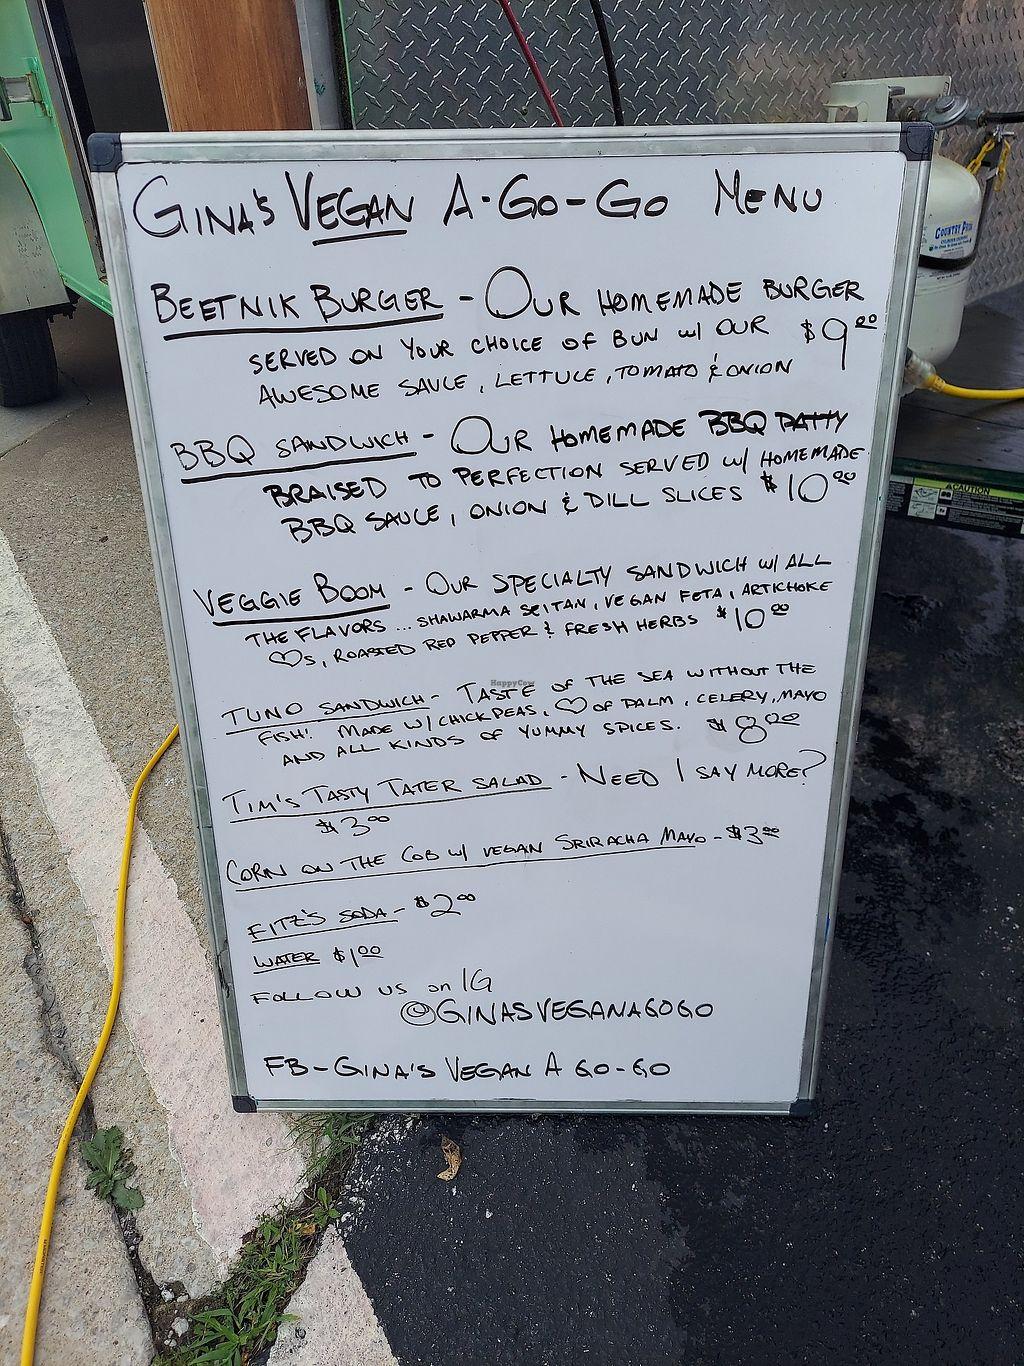 GINA'S VEGAN A-GO-GO MENU
BEETNIK BURGER - OUR HOMEMADE BURGER
SERVED ON YOUR CHOICE OF BUN W/ OUR $9.00
AWESOME SAUCE, LETTUCE, TOMATO & ONION
BBQ SANDWICH - OUR HOMEMADE BBQ PATTY
BRAISED TO PERFECTION SERVED W/ HOMEMADE
BBQ SAUCE, ONION & DILL SLICES $10.00
VEGGIE BOOM - OUR SPECIALTY SANDWICH W/ ALL
THE FLAVORS... SHAWARMA SEITAN, VEGAN FETA, ARTICHOKE
♡S, ROASTED RED PEPPER & FRESH HERBS $10.00
TUNO SANDWICH - TASTE OF THE SEA WITHOUT THE
FISH! MADE W/ CHICKPEAS, ♡ OF PALM, CELERY, MAYO
AND ALL KINDS OF YUMMY SPICES. $8.00
TIM'S TASTY TATER SALAD - NEED I SAY MORE?
$3.00
CORN ON THE COB W/ VEGAN SRIRACHA MAYO - $3.00
FITZ'S SODA - $2.00
WATER $1.00
FOLLOW US ON IG
@GINASVEGANAGOGO
FB - GINA'S VEGAN A GO-GO
HappyCow
COUNTRY PRIDE
CAUTION